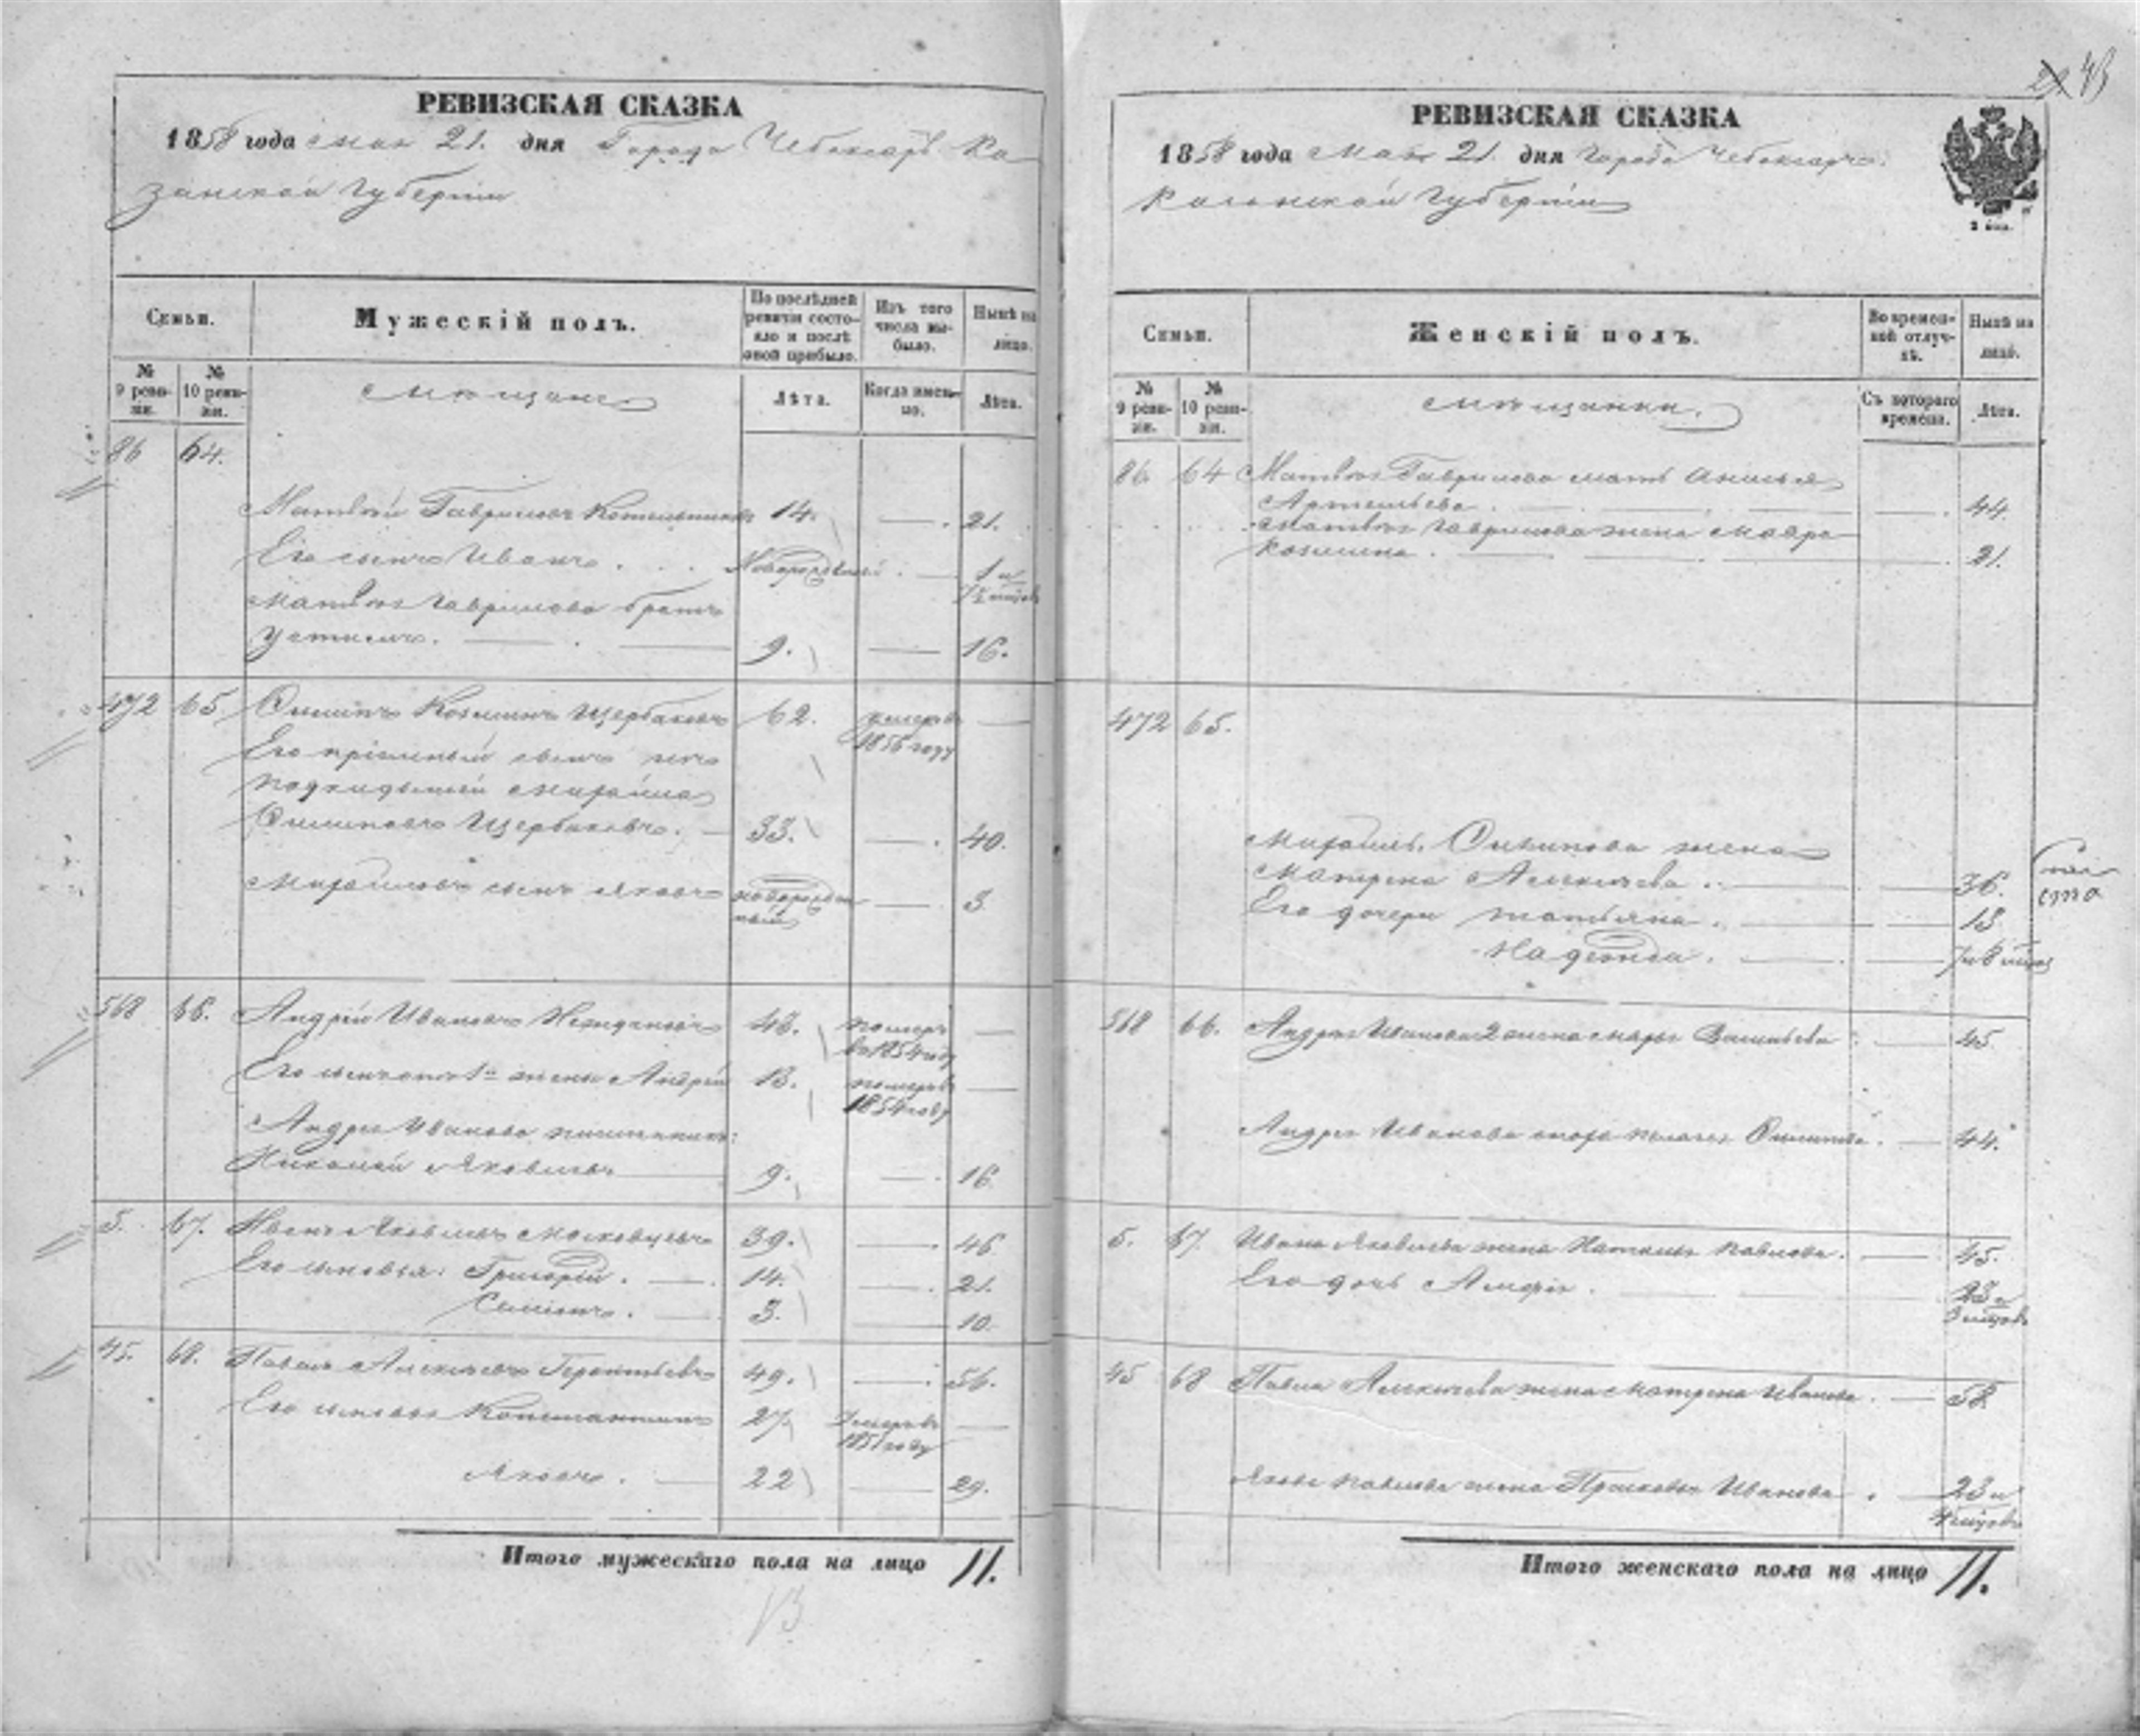 РЕВИЗСКАЯ СКАЗКА
1858 года мая 21. дня Города Чебоксаръ Ка
занской Губерніи
Семьи.
Мужескій полъ.
По послѣдней ревизіи состояло и послѣ оной прибыло.
Изъ того числа выбыло.
Нынѣ на лицо.
№ 9 ревизіи.
№ 10 ревизіи.
Мѣщане
Лѣта.
Когда именно.
Лѣта.
86 64.
Матвѣй Гавриловъ Котельниковъ 14. 21.
Его сынъ Иванъ. Новорожденный 1 и
Матвѣя Гаврилова братъ
Устинъ. 9. 16.
472 65 Осипъ Козминъ Щербаковъ 62. умеръ
1856 году
Его пріемный сынъ изъ
подкидышей Михайла
Осиповъ Щербаковъ. 33. 40.
Михайловъ сынъ Яковъ новорожден
ный 3
568 66. Андрей Ивановъ 48. померъ
въ 1854 году
Его сынъ отъ 1й жены Андрей 13. померъ
1854 году
Андрея Иванова
Николай Яковлевъ 9. 16.
5. 67. Иванъ Яковлевъ Московцевъ 39. 46
Его сыновья: Григорій. 14. 21.
Семенъ. 3. 10.
45. 68. Павелъ Алексѣевъ Геронтьевъ 49. 56.
Его сыновья Константинъ 27 умеръ
1851 году
Яковъ. 22 29.
Итого мужескаго пола на лицо 11.
13
43
РЕВИЗСКАЯ СКАЗКА
1858 года Мая 21. дня Города Чебоксаръ
Казанской Губерніи
Семьи.
Женскій полъ.
Во временной отлучкѣ.
Нынѣ на лицо.
№ 9 ревизіи.
№ 10 ревизіи.
Мѣщанки.
Съ котораго времени.
Лѣта.
86. 64 Матвѣя Гаврилова мать Анисья
Артемьева 44.
Матвѣя Гаврилова жена Мавра
Козмина. 21.
472 65.
Михайлы Осипова жена
Матрена Алексѣева. 36.
Его дочери Татьяна. 13
Надежда. 7 и 8 мѣсяц
568 66. Андрея Иванова 2 жена Марья Васильева 45
Андрея Иванова Осипова. 44.
5. 67. Ивана Яковлева жена Наталья Павлова. 45.
Его дочь 23 и
3 мѣсяцовъ
45 68 Павла Алексѣева жена Матрена Иванова. 58.
Якова Павлова жена Прасковья Иванова 23 и
мѣсяцовъ
Итого женскаго пола на лицо 11.